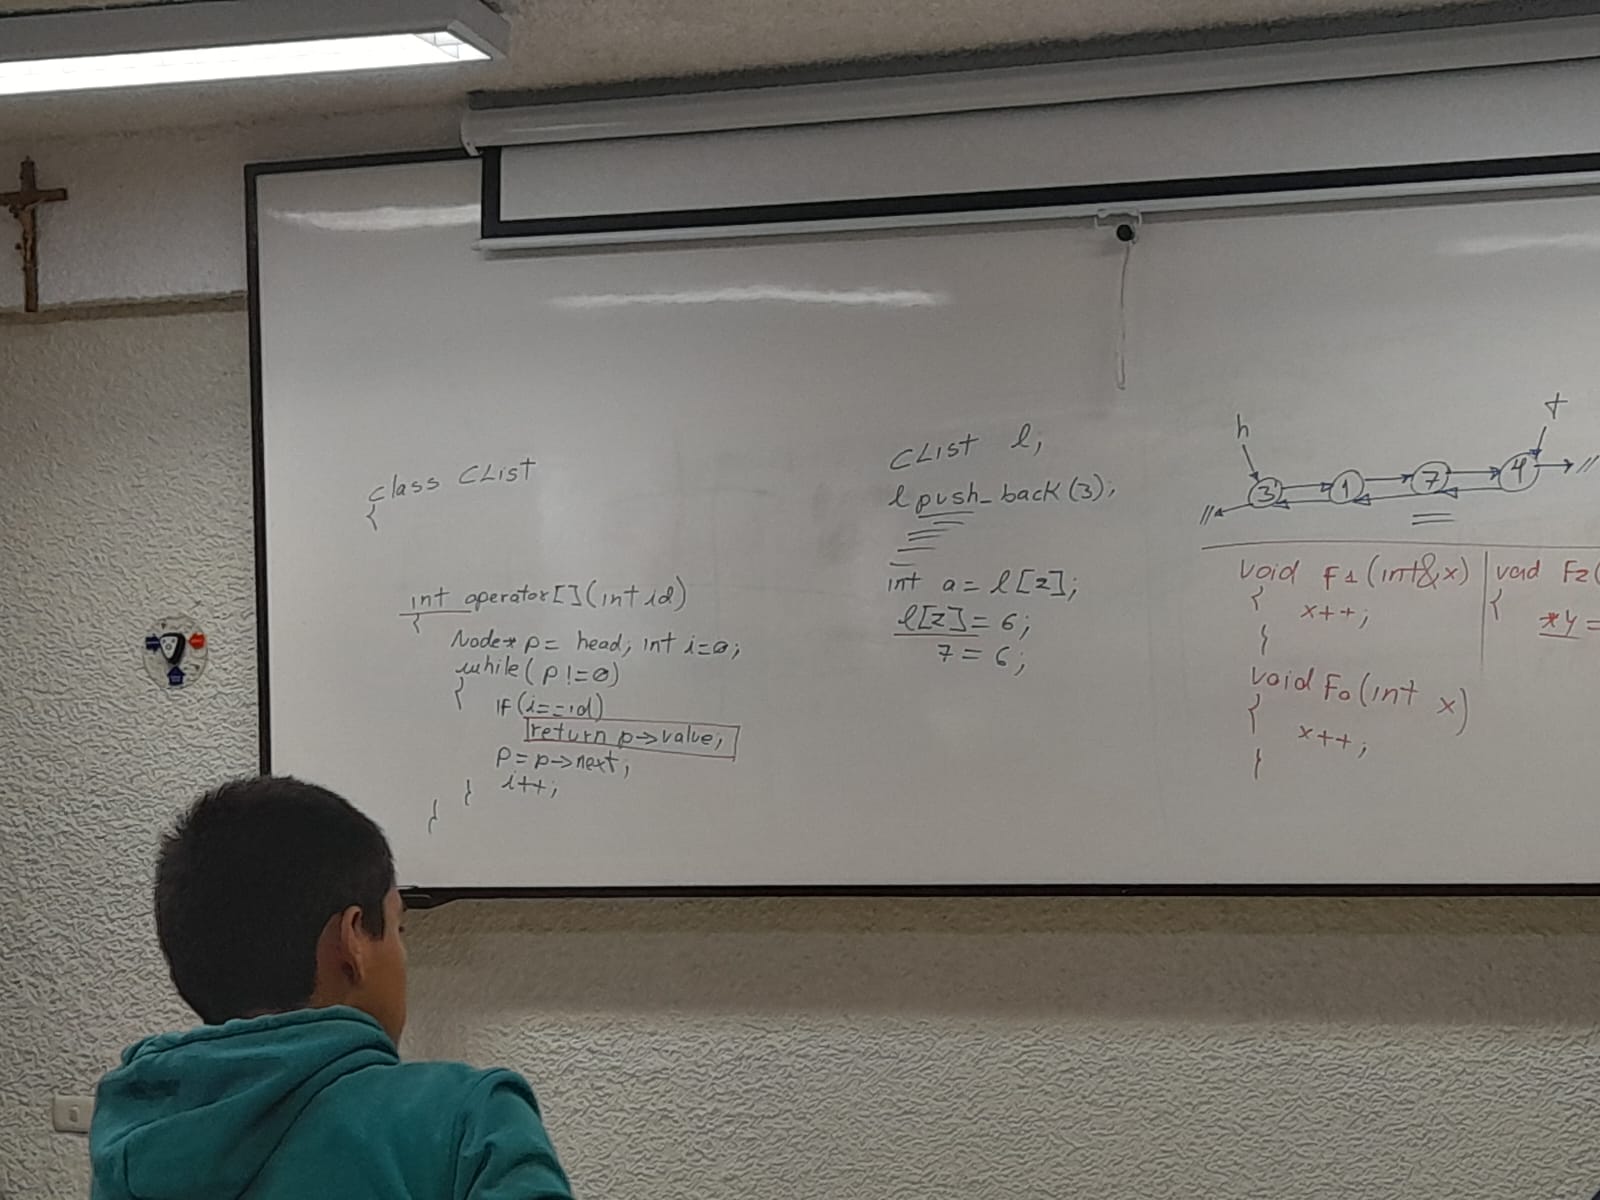 class CList
{
int operator[](int id)
{
Node* p = head; int i=0;
while( p != 0)
{
if (i==id)
return p->value;
p = p->next;
i++;
}
}
CList l;
l push_back(3);
int a = l[2];
l[2] = 6;
7 = 6;
h
t
3 1 7 4
void F1 (int&x)
{
x++;
}
void F0 (int x)
{
x++;
}
void F2(
{
*y =